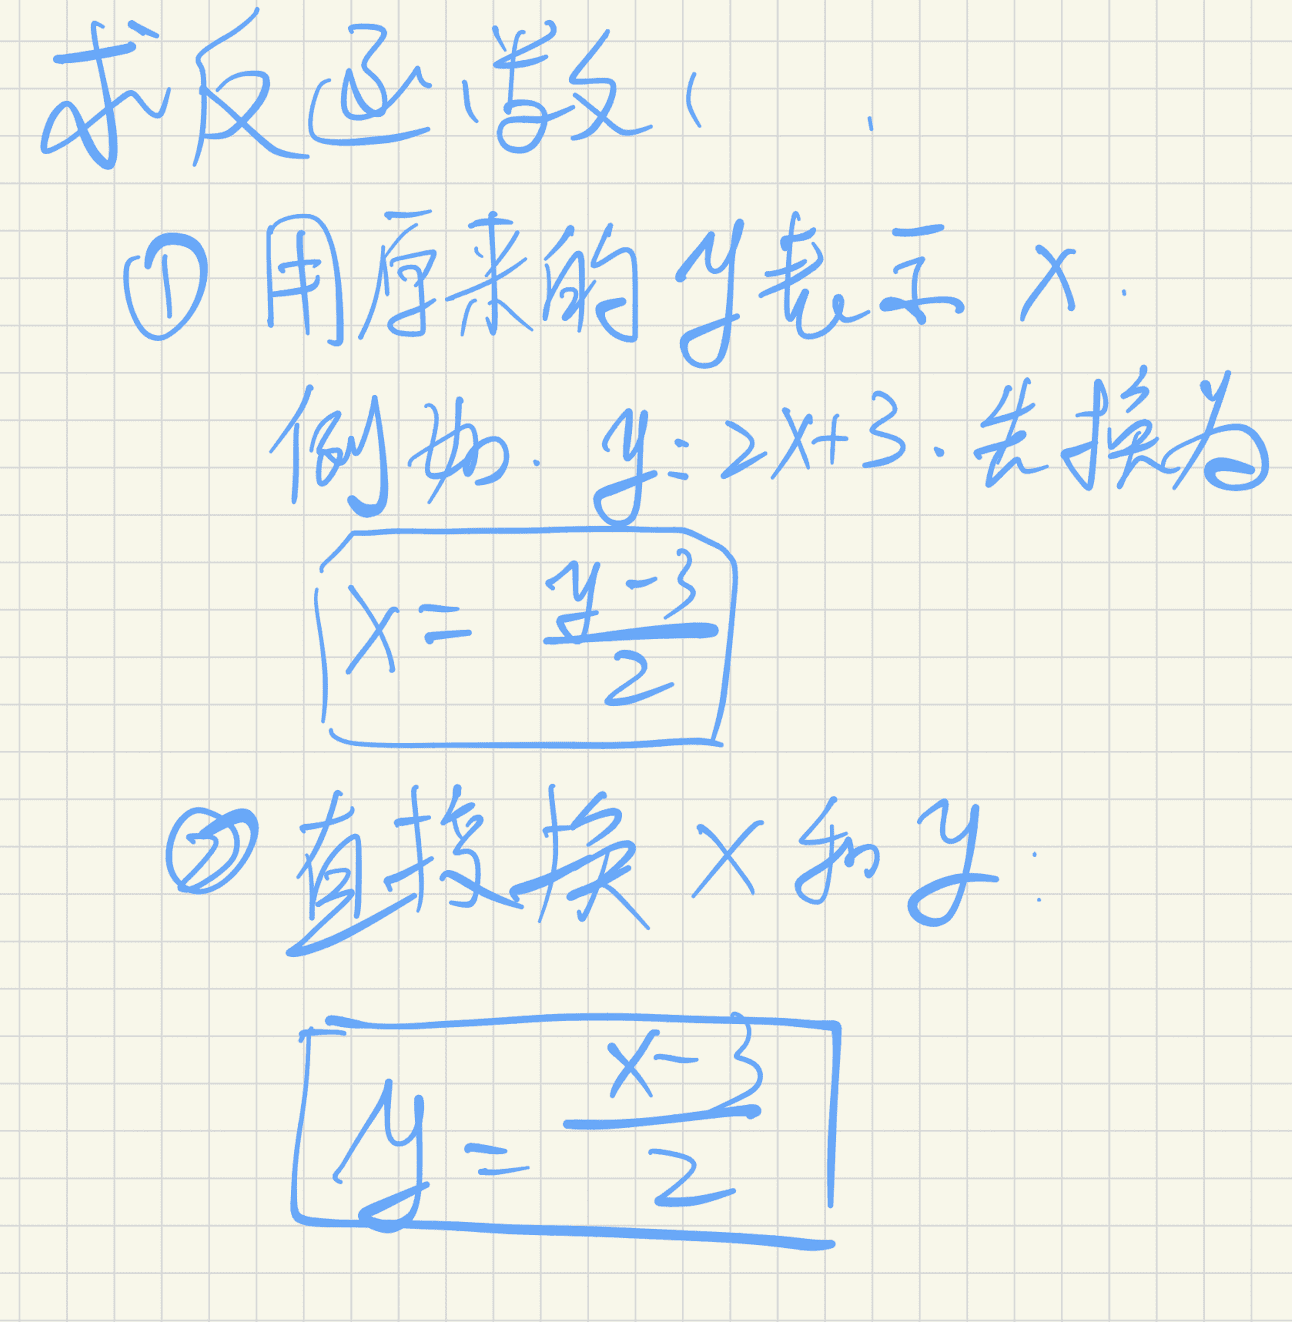 求反函数(
① 用原来的y表示x.
例如. y=2x+3. 先换为
x = \frac{y-3}{2}
② 直接换x和y.
y = \frac{x-3}{2}